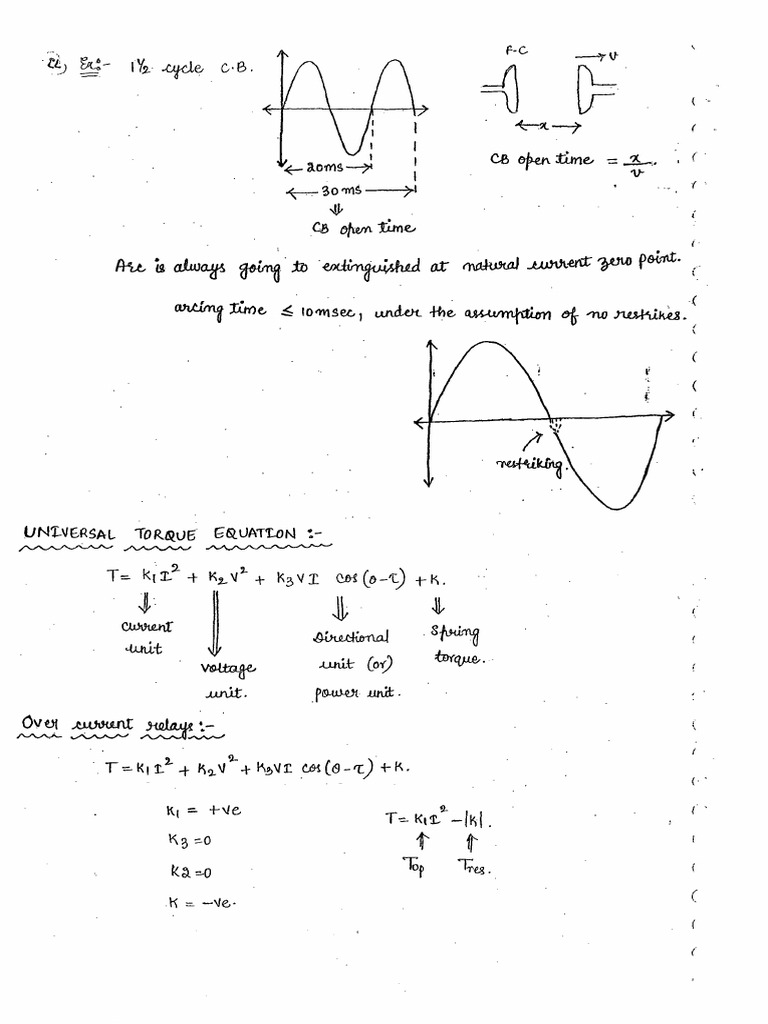 Ex:- 1½ cycle C.B.
F-C
→ v
← x →
CB open time = x/v.
← 20ms →
← 30ms →
⇓
CB open time
Arc is always going to extinguished at natural current zero point.
arcing time ≤ 10msec, under the assumption of no restrikes.
restriking.
UNIVERSAL TORQUE EQUATION :-
T = K₁I² + K₂V² + K₃VI cos(θ-τ) + K.
current unit
voltage unit.
Directional unit (or) power unit.
Spring torque.
Over current relays:-
T = K₁I² + K₂V² + K₃VI cos(θ-τ) + K.
K₁ = +ve
K₃ = 0
K2 = 0
K = -ve.
T = K₁I² - |K|.
Top
Tres.